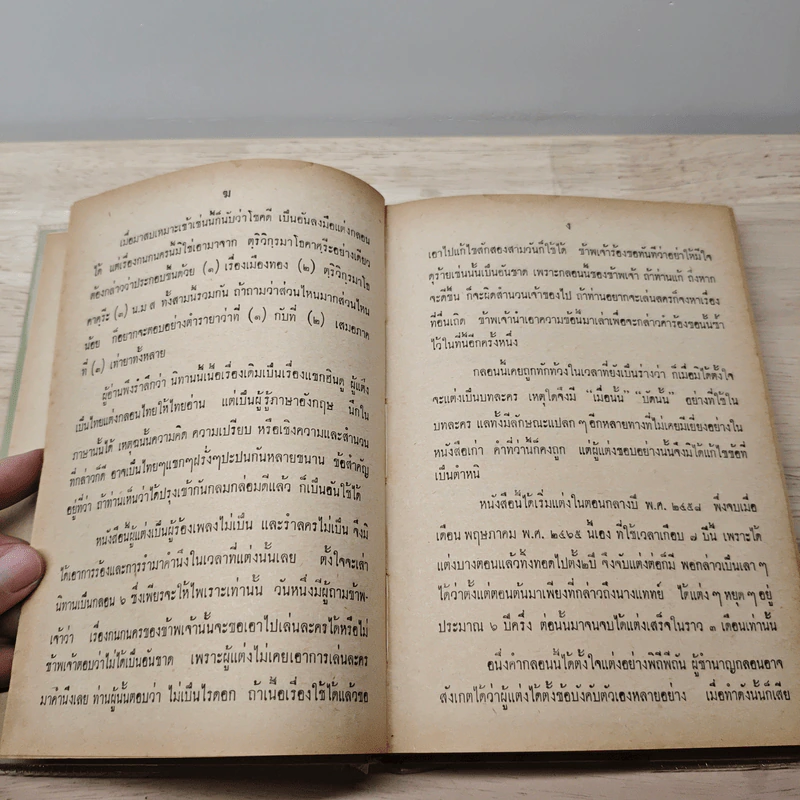 ฆ
เมื่อมาสบเหมาะเข้าเช่นนี้ก็นับว่าโชคดี เป็นอันลงมือแต่งกลอน
ได้ แต่เรื่องกนกนครนี้มิใช่เอามาจาก ตฺริวิกฺรมาโธคาตฺริะอย่างเดียว
ต้องกล่าวว่าประกอบขึ้นด้วย (๑) เรื่องเมืองทอง (๒) ตฺริวิกฺรมาโธ
คาตฺริะ (๓) น.ม.ส. ทั้งสามนี้รวมกัน ถ้าถามว่าส่วนไหนมากส่วนไหน
น้อย ก็อยากจะตอบอย่างตำรายาว่าที่ (๑) กับที่ (๒) เสมอภาค
ที่ (๓) เท่ายาทั้งหลาย
ผู้อ่านพึงรำลึกว่า นิทานนี้เนื้อเรื่องเดิมเป็นเรื่องแขกฮินดู ผู้แต่ง
เป็นไทยแต่งกลอนไทยให้ไทยอ่าน แต่เป็นผู้รู้ภาษาอังกฤษ นึกใน
ภาษานั้นได้ เหตุฉนั้นความคิด ความเปรียบ หรือเชิงความและสำนวน
ที่กล่าวก็ดี อาจเป็นไทยๆแขกๆฝรั่งๆปะปนกันหลายขนาน ข้อสำคัญ
อยู่ที่ว่า ถ้าท่านเห็นว่าได้ปรุงเข้ากันกลมกล่อมดีแล้ว ก็เป็นอันใช้ได้
หนังสือนี้ผู้แต่งเป็นผู้ร้องเพลงไม่เป็น และรำละครไม่เป็น จึงมิ
ได้เอาการร้องและการรำมาคำนึงในเวลาที่แต่งนั้นเลย ตั้งใจจะเล่า
นิทานเป็นกลอน ๖ ซึ่งเพียรจะให้ไพเราะเท่านั้น วันหนึ่งมีผู้ถามข้าพ-
เจ้าว่า เรื่องกนกนครของข้าพเจ้านั้นจะขอเอาไปเล่นละครได้หรือไม่
ข้าพเจ้าตอบว่าไม่ได้เป็นอันขาด เพราะผู้แต่งไม่เคยเอาการเล่นละคร
มาคำนึงเลย ท่านผู้นั้นตอบว่า ไม่เป็นไรดอก ถ้าเนื้อเรื่องใช้ได้แล้วขอ
ง
เอาไปแก้ไขสักสองสามวันก็ใช้ได้ ข้าพเจ้าร้องขอทันทีว่าอย่าให้มีใจ
ดุร้ายเช่นนั้นเป็นอันขาด เพราะกลอนนี้ของข้าพเจ้า ถ้าท่านแก้ ถึงหาก
จะดีขึ้น ก็จะผิดสำนวนเจ้าของไป ถ้าท่านอยากจะเล่นละครก็จงหาเรื่อง
ที่อื่นเถิด ข้าพเจ้านำเอาความข้อนี้มาเล่าเพื่อจะกล่าวคำร้องขอนั้นซ้ำ
ไว้ในที่นี้อีกครั้งหนึ่ง
กลอนนี้เคยถูกทักท้วงในเวลาที่ยังเป็นร่างว่า ก็เมื่อมิได้ตั้งใจ
จะแต่งเป็นบทละคร เหตุใดจึงมี “เมื่อนั้น” “บัดนั้น” อย่างที่ใช้ใน
บทละคร แลทั้งมีลักษณะแปลก ๆ อีกหลายทางที่ไม่เคยมีเยี่ยงอย่างใน
หนังสือเก่า คำที่ว่านี้ก็คงถูก แต่ผู้แต่งชอบอย่างนั้นจึงมิได้แก้ไขข้อที่
เป็นตำหนิ
หนังสือนี้ได้เริ่มแต่งในตอนกลางปี พ.ศ. ๒๔๕๘ พึ่งจบเมื่อ
เดือน พฤษภาคม พ.ศ. ๒๔๖๕ นี้เอง ที่ใช้เวลาเกือบ ๗ ปีนี้ เพราะได้
แต่งบางตอนแล้วทิ้งทอดไปตั้ง๒ปี จึงจับแต่งต่อก็มี พอกล่าวเป็นเลา ๆ
ได้ว่าตั้งแต่ตอนต้นมาเพียงที่กล่าวถึงนางแพทย์ ได้แต่ง ๆ หยุด ๆ อยู่
ประมาณ ๖ ปีครึ่ง ต่อนั้นมาจนจบได้แต่งเสร็จในราว ๓ เดือนเท่านั้น
อนึ่งคำกลอนนี้ได้ตั้งใจแต่งอย่างพิถีพิถัน ผู้ชำนาญกลอนอาจ
สังเกตได้ว่าผู้แต่งได้ตั้งข้อบังคับตัวเองหลายอย่าง เมื่อทำดังนั้นก็เสีย